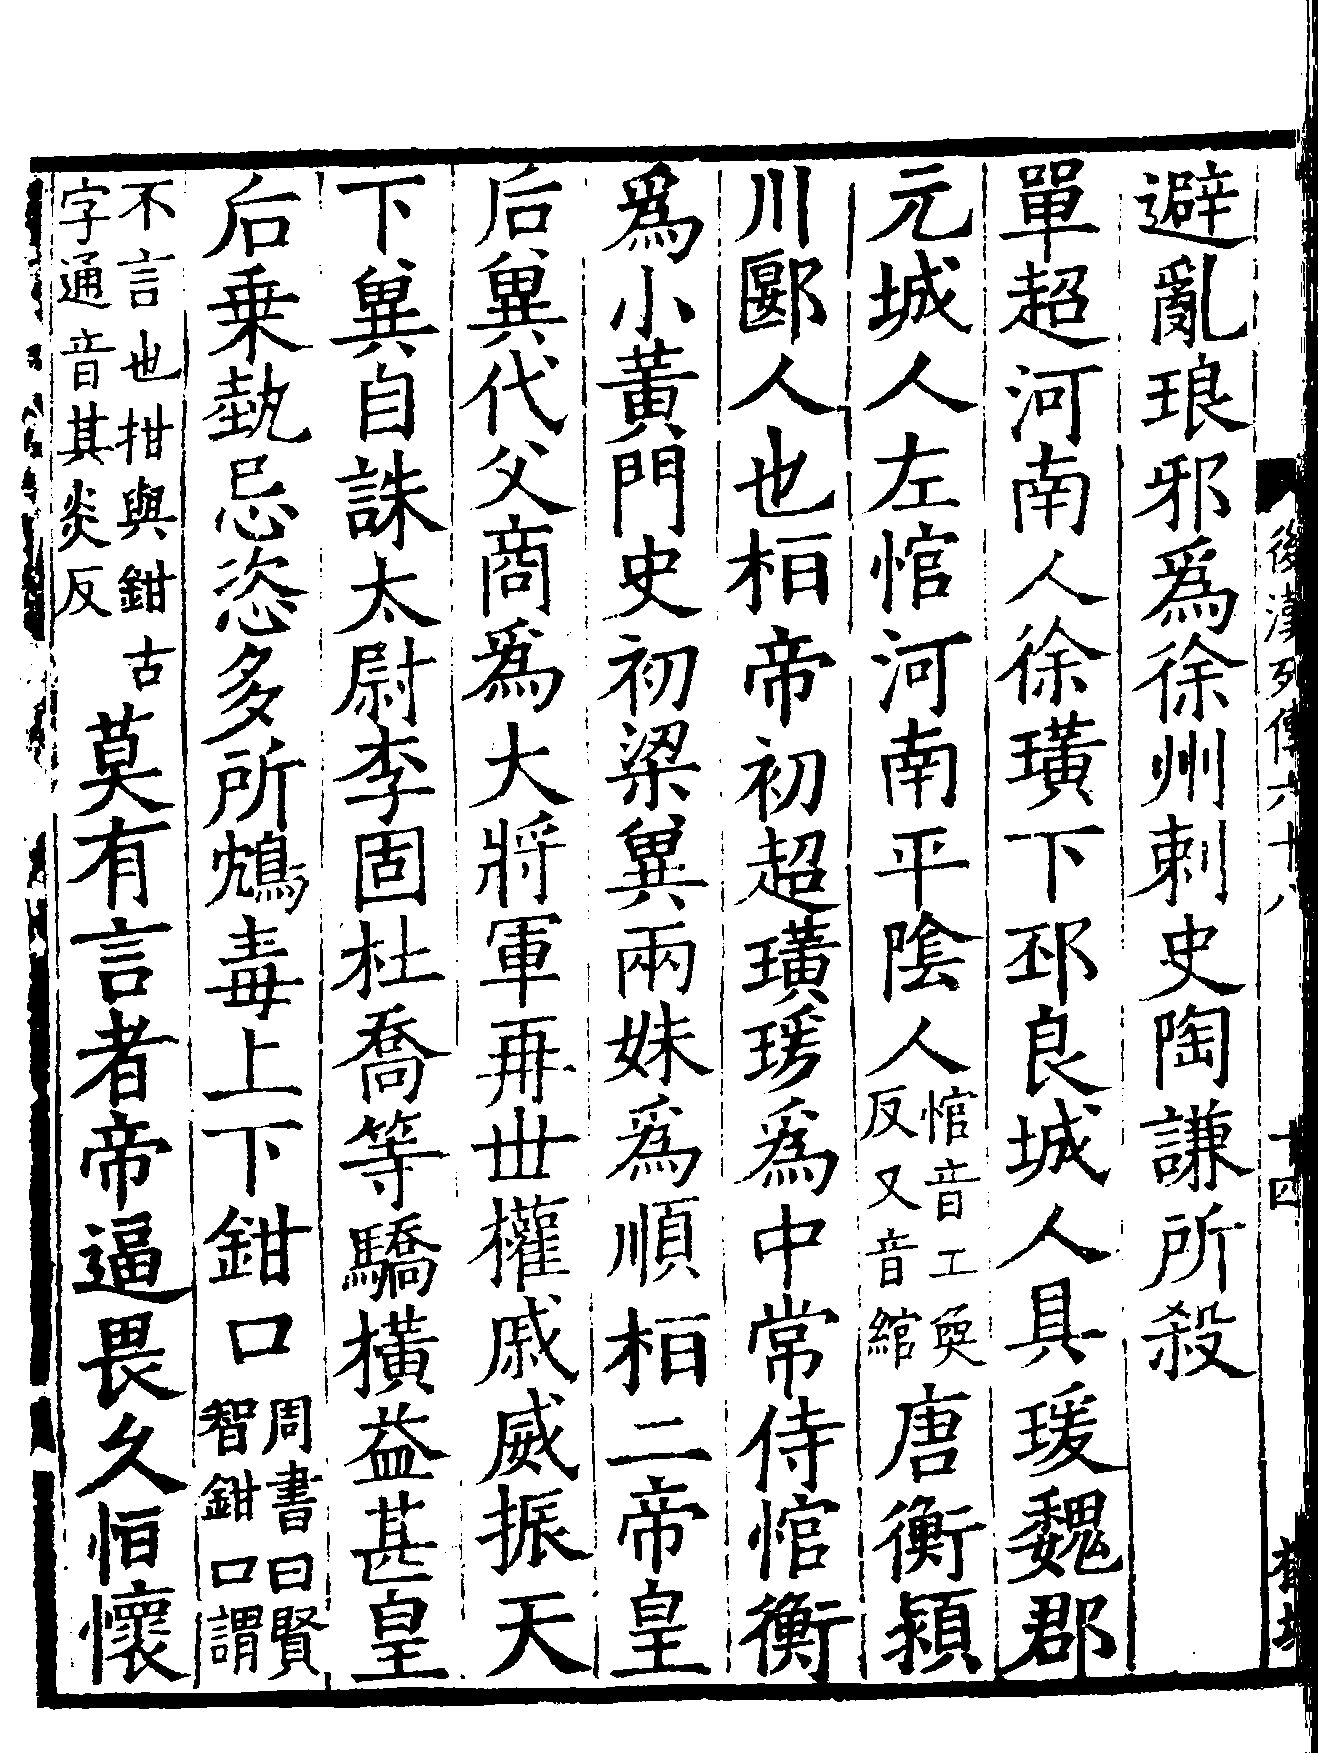 避亂琅邪爲徐州刺史陶謙所殺
單超河南人徐璜下邳良城人具瑗魏郡
元城人左悺河南平陰人悺音工奐反又音綰唐衡潁
川郾人也桓帝初超璜瑗爲中常侍悺衡
爲小黃門史初梁兾兩妹爲順桓二帝皇
后兾代父商爲大將軍再丗權戚威振天
下兾自誅太尉李固杜喬等驕橫益甚皇
后乗埶忌恣多所鴆毒上下鉗口周書曰賢智鉗口謂
不言也拑與鉗古字通音其炎反莫有言者帝逼畏久恒懷
後漢列傳六十八
十四